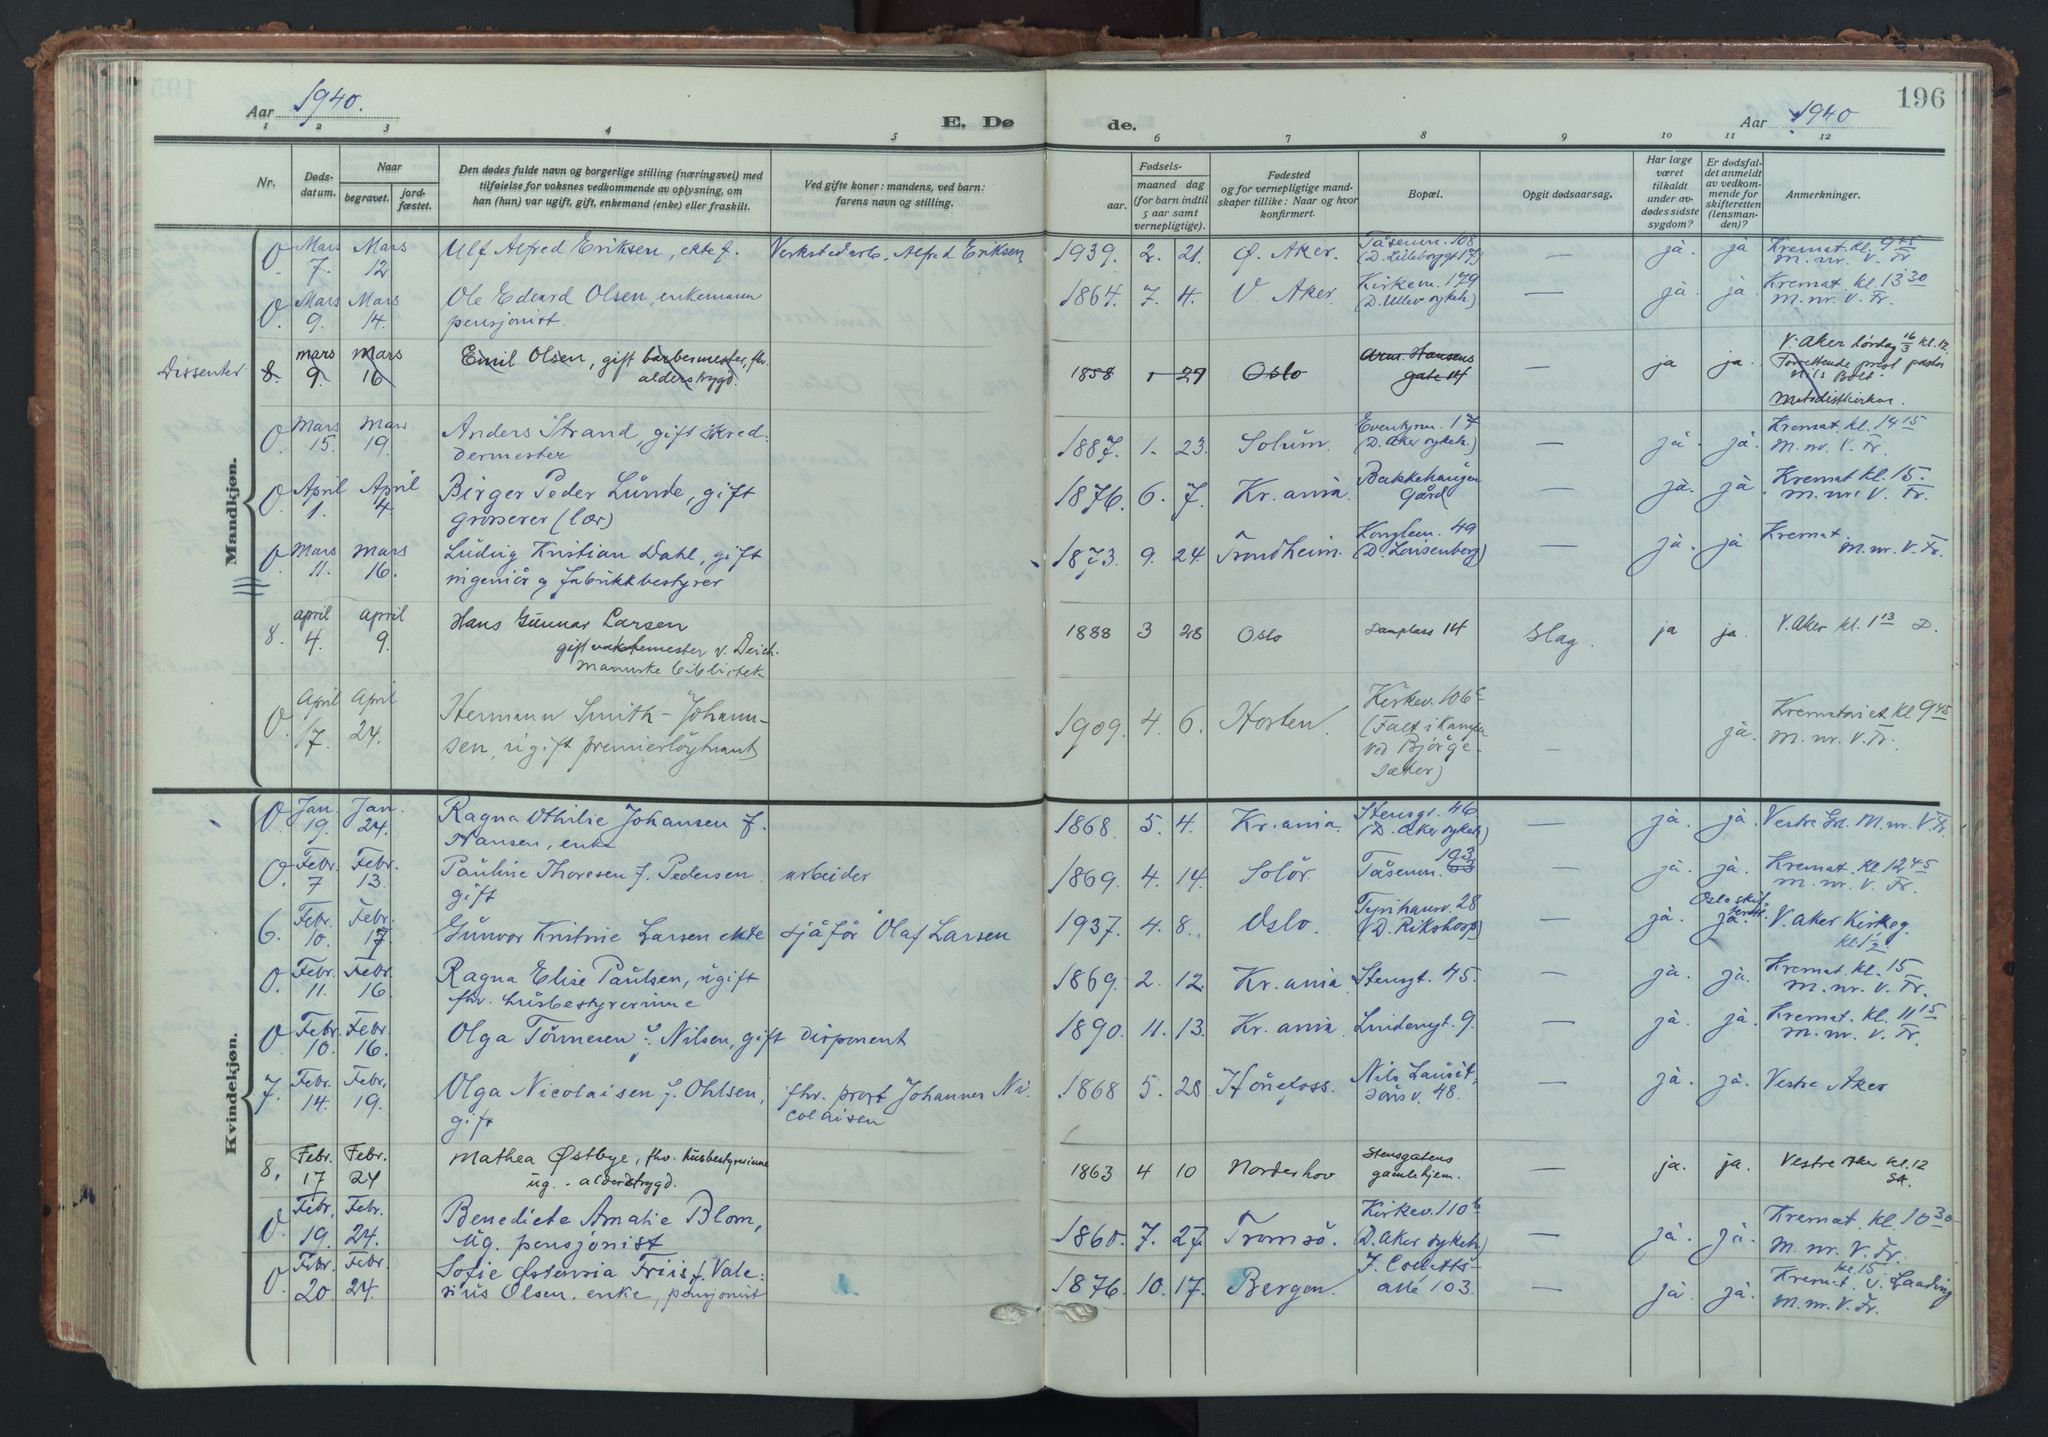 Aar 1940.
E. Dø de.
Aar 1940
196
1 2 3 4 5 6 7 8 9 10 11 12
Nr.
Døds-
datum.
Naar
begravet.
jord-
fæstet.
Den dødes fulde navn og borgerlige stilling (næringsvei) med
tilføielse for voksnes vedkommende av oplysning, om
han (hun) var ugift, gift, enkemand (enke) eller fraskilt.
Ved gifte koner: mandens, ved barn:
farens navn og stilling.
Fødsels-
aar.
maaned dag
(for barn indtil
5 aar samt
vernepligtige).
Fødested
og for vernepligtige mand-
skaper tillike: Naar og hvor
konfirmert.
Bopæl.
Opgit dødsaarsag.
Har læge
været
tilkaldt
under av-
dødes sidste
sygdom?
Er dødsfal-
det anmeldt
av vedkom-
mende for
skifteretten
(lensman-
den)?
Anmerkninger.
Mandkjøn.
0. Mars 7. Mars 12 Ulf Alfred Eriksen, ekte f. Verkstedarb. Alfred Eriksen 1939. 2. 21. Ø. Aker. Tåsenvn. 108 — ja. ja Kremat. kl. 9 45
(D. Lilleborggt 17) M. nr. V. Fr
0. Mars 9. Mars 14. Ole Edvard Olsen, enkemann 1864. 7. 4. V. Aker. Kirkev. 179 — ja. ja. Kremat. kl. 13 30
pensjonist. (D. Ullev sykeh.) M. nr. V. Fr.
Dissenter 8. mars 9. Mars 16 Emil Olsen, gift barbermester, fhv. 1858 1 29 Oslo Arm. Hansens — ja ja. V. Aker lørdag 16/3 kl. 12.
alderstrygd. gate 14 Forrettende prest pastor
Nils Bolt.
Metodistkirken.
0. Mars 15. Mars 19. Anders Strand, gift skred- 1887. 1. 23. Solum. Eventyrvn. 17 — ja. ja. Kremat. kl. 14 15
dermester (D. Aker sykeh.) M. nr. V. Fr.
0. April 1. April 4. Birger Peder Lunde, gift 1876. 6. 7. Kr.ania. Bakkehaugen — ja. ja Kremat kl. 15.
grosserer (lær) Gård M. nr. V. Fr.
0. Mars 11. Mars 16. Ludvig Kristian Dahl, gift 1873. 9. 24. Trondheim. Konglevn. 49 — ja. ja Kremat.
ingeniør og fabrikkbestyrer (D. Lovisenberg) M. nr. V. Fr.
8. april 4. april 9. Hans Gunnar Larsen 1888 3 28 Oslo Damplass 14 Slag. ja ja. V. Aker kl. 1 13 D.
gift vaktemester v. Deich-
manske bibliotek
0. April 17. April 24. Hermann Smith-Johann- 1909. 4. 6. Horten. Kirkev. 106 c — ja. Krematoriet kl 9 45
sen, ugift premierløytnant (Falt i kamper M. nr. V. Fr.
ved Bjørge-
sæter)
Kvindekjøn.
0. Jan. 19. Jan. 24. Ragna Othilie Johansen f. 1868. 5. 4. Kr.ania. Stensgt. 46 — ja. ja. Vestre Grl. M. nr. V. Fr.
Hansen, enke (D. Aker sykeh)
0. Febr. 7 Febr. 13. Pauline Thoresen f. Pedersen. arbeider 1869. 4. 14. Solør. Tåsenvn. 193 — ja. ja. Kremat. kl. 12 45
gift M. nr. V. Fr.
6. Febr. 10. Febr. 17 Gunvor Kristine Larsen ekte sjåfør Olaf Larsen 1937. 4. 8. Oslo. Tyrihansv. 28 — ja. Oslo skif-
terett. ja. V. Aker Kirkeg.
(D. Rikshosp) kl. 1½
0. Febr. 11. Febr. 16. Ragna Elise Paulsen, ugift 1869. 2. 12. Kr.ania. Stensgt. 45. — ja. ja. Kremat. kl. 15
fhv. husbestyrerinne M. nr. V. Fr.
0. Febr. 10. Febr. 16. Olga Tönnesen f. Nilsen, gift disponent 1890. 11. 13. Kr.ania. Lindengt. 9. — ja. ja. Kremat. kl. 11 15
M. nr. V. Fr.
7. Febr. 14. Febr. 19. Olga Nicolaisen f. Ohlsen, fhv. prost Johannes Ni- 1868 5. 28. Hönefoss. Nils Laurit- — ja. ja. Vestre Aker
gift colaisen söns v. 48.
8. Febr. 17 Febr. 24 Mathea Østbye, fhv. husbestyrerinne 1863 4 10 Norderhov Stensgatens — ja. ja. Vestre Aker kl. 12
ug. - alderstrygd. gamlehjem. St.
0. Febr. 19. Febr. 24. Benedicte Amalie Blom, 1860. 7. 27. Tromsö. Kirkev. 110 b — ja. ja. Kremat. kl. 10 30
ug. pensjonist (D. Aker sykeh) M. nr. V. Fr.
0. Febr. 20. Febr. 24. Sofie Østensia Friis f. Vale- 1876. 10. 17. Bergen. J. Colletts — ja. ja. Kremat. kl. 15.
rius Olsen. enke, pensjonist alle 103. M. nr. V. Fr.